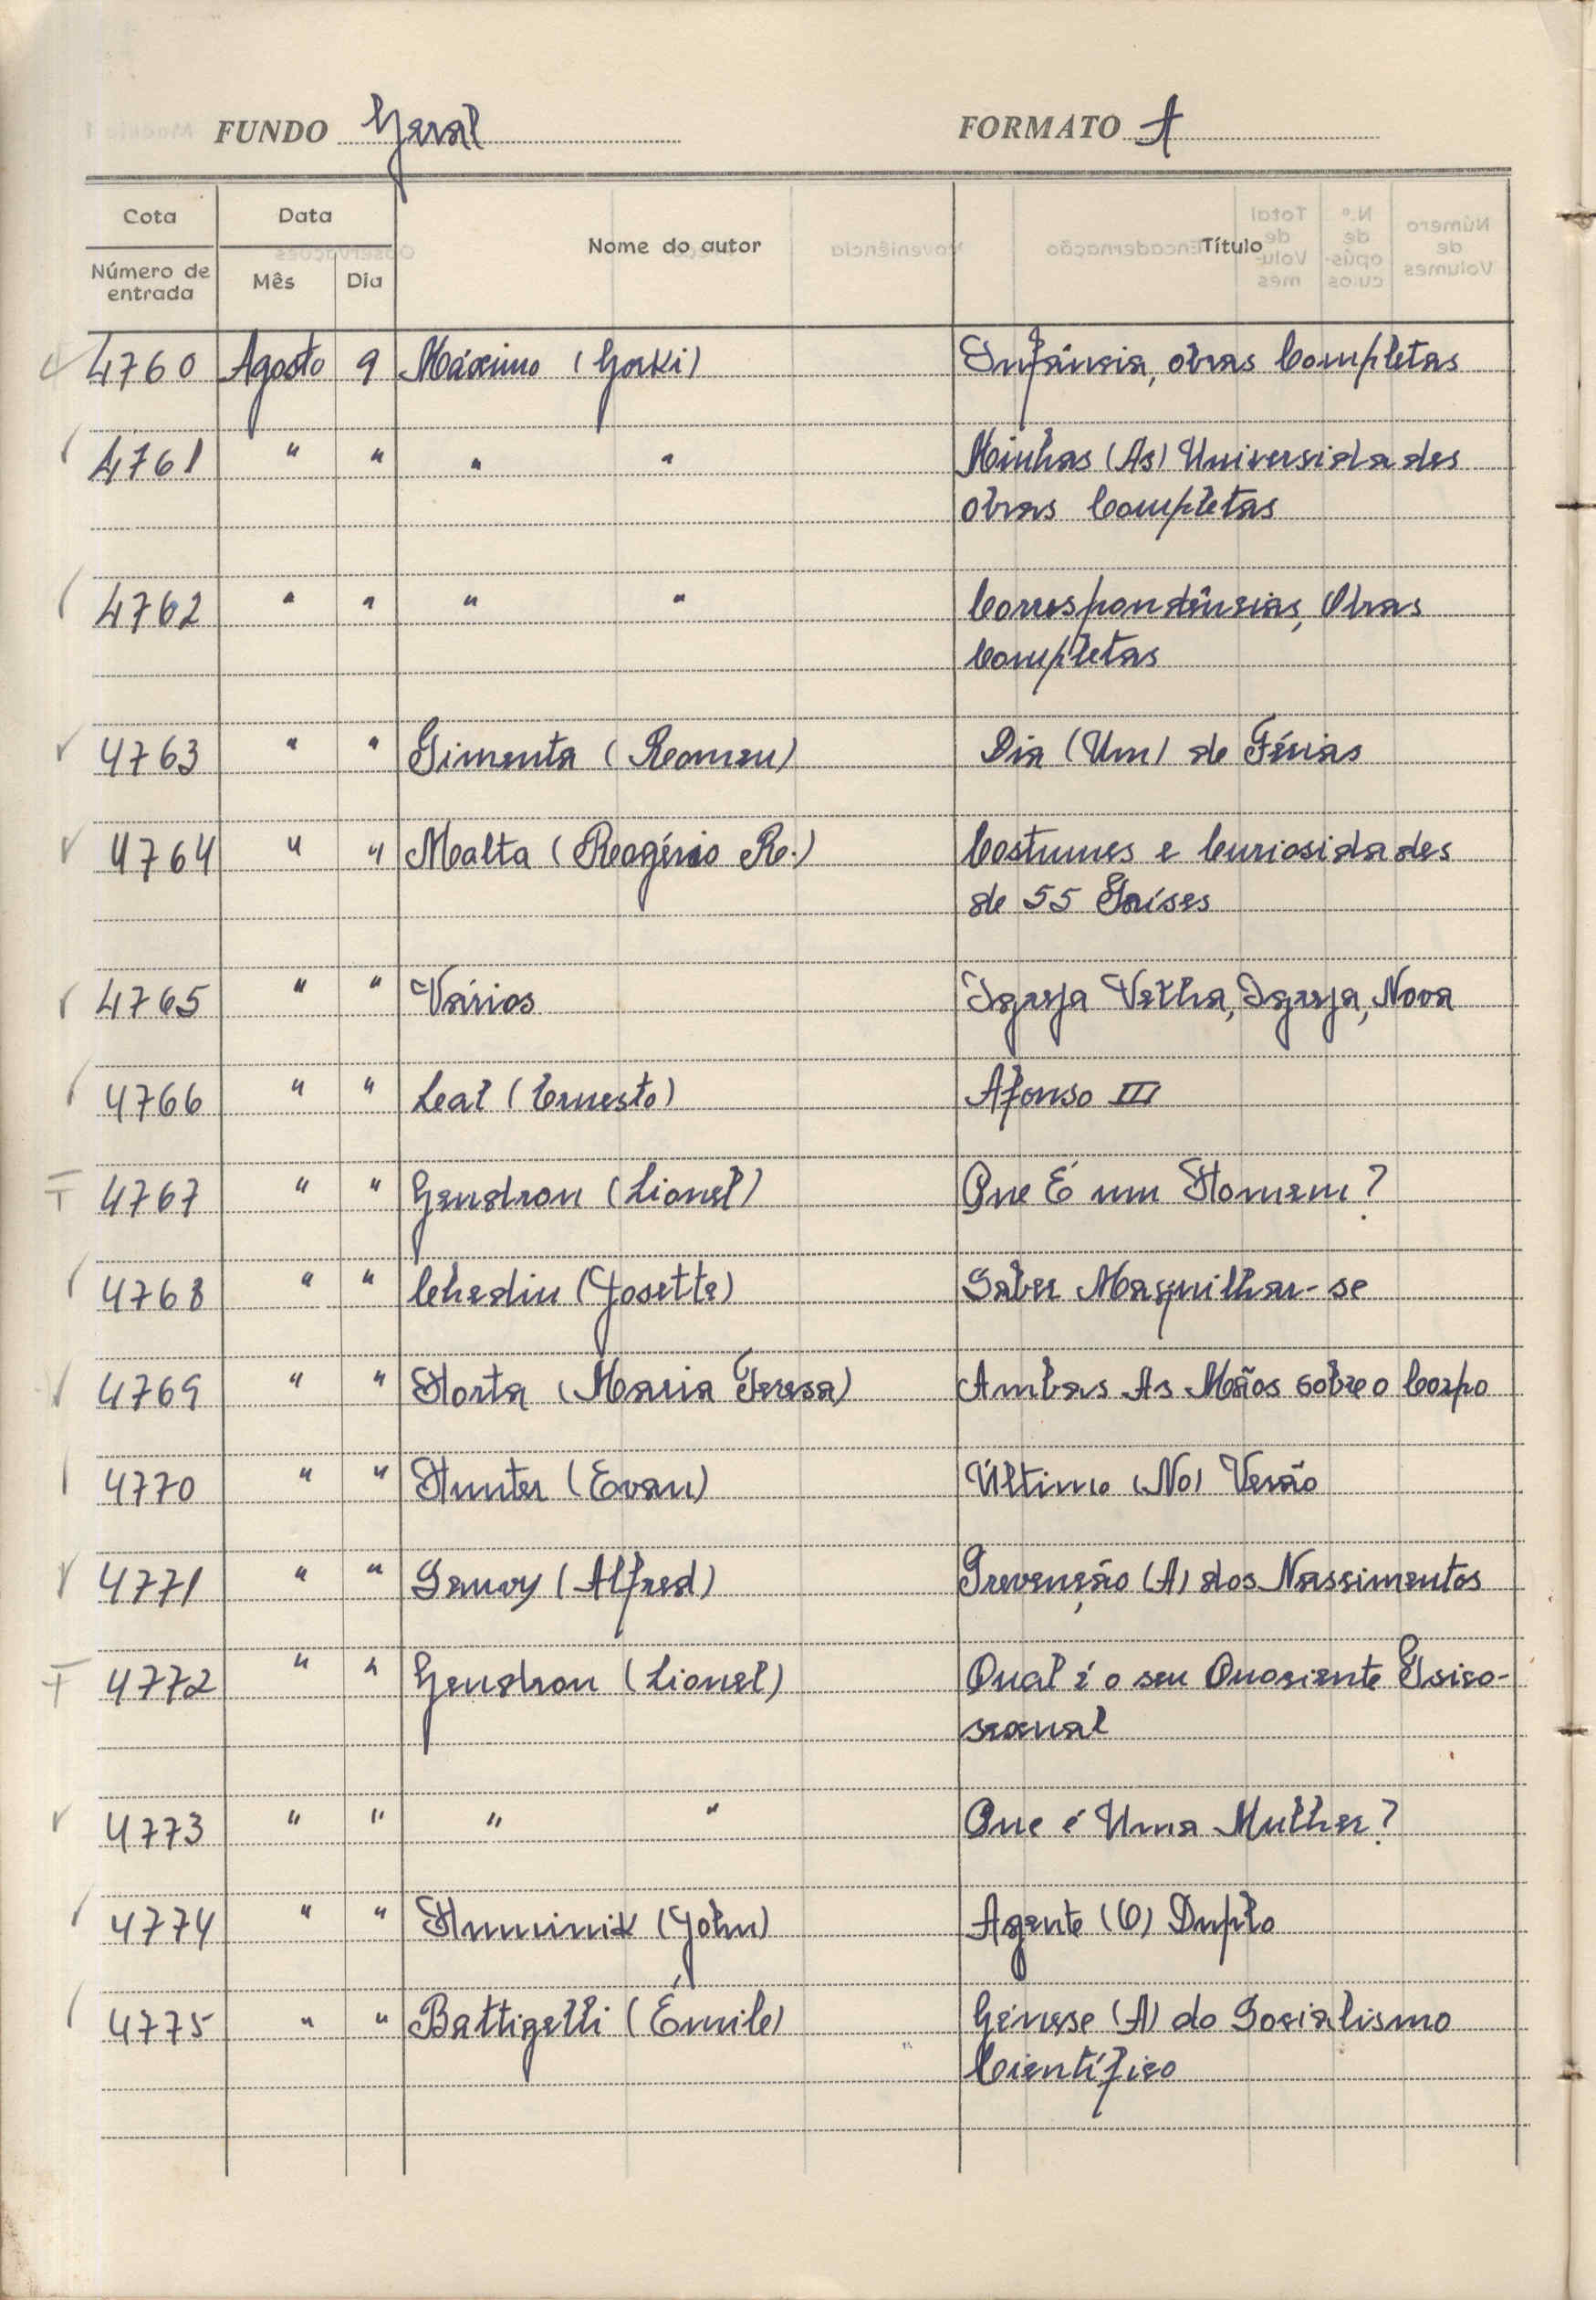 FUNDO Geral FORMATO A
Cota Data Nome do autor Título
Número de entrada Mês Dia
4760 Agosto 9 Máximo (Gorki) Infância, obras Completas
4761 " " " " Minhas (As) Universidades
obras Completas
4762 " " " " Correspondências, Obras
Completas
4763 " " Pimenta (Romeu) Dia (Um) de Férias
4764 " " Malta (Rogério R.) Costumes e Curiosidades
de 55 Países
4765 " " Vários Igreja Velha, Igreja, Nova
4766 " " Leal (Ernesto) Afonso III
T 4767 " " Gendron (Lionel) Que É um Homem?
4768 " " Chediu (Josette) Saber Maquilhar-se
4769 " " Horta (Maria Teresa) Ambas As Mãos sobre o Corpo
4770 " " Hunter (Evan) Último (No) Verão
4771 " " Sauvy (Alfred) Prevenção (A) dos Nascimentos
T 4772 " " Gendron (Lionel) Qual é o seu Quociente Psico-
sexual
4773 " " " " Que é Uma Mulher?
4774 " " (John) Agente (O) Duplo
4775 " " Battigelli (Émile) Génese (A) do Socialismo
Científico
Número de Volumes
N.º de opúsculos
Total de Volumes
Encadernação
Proveniência
Observações